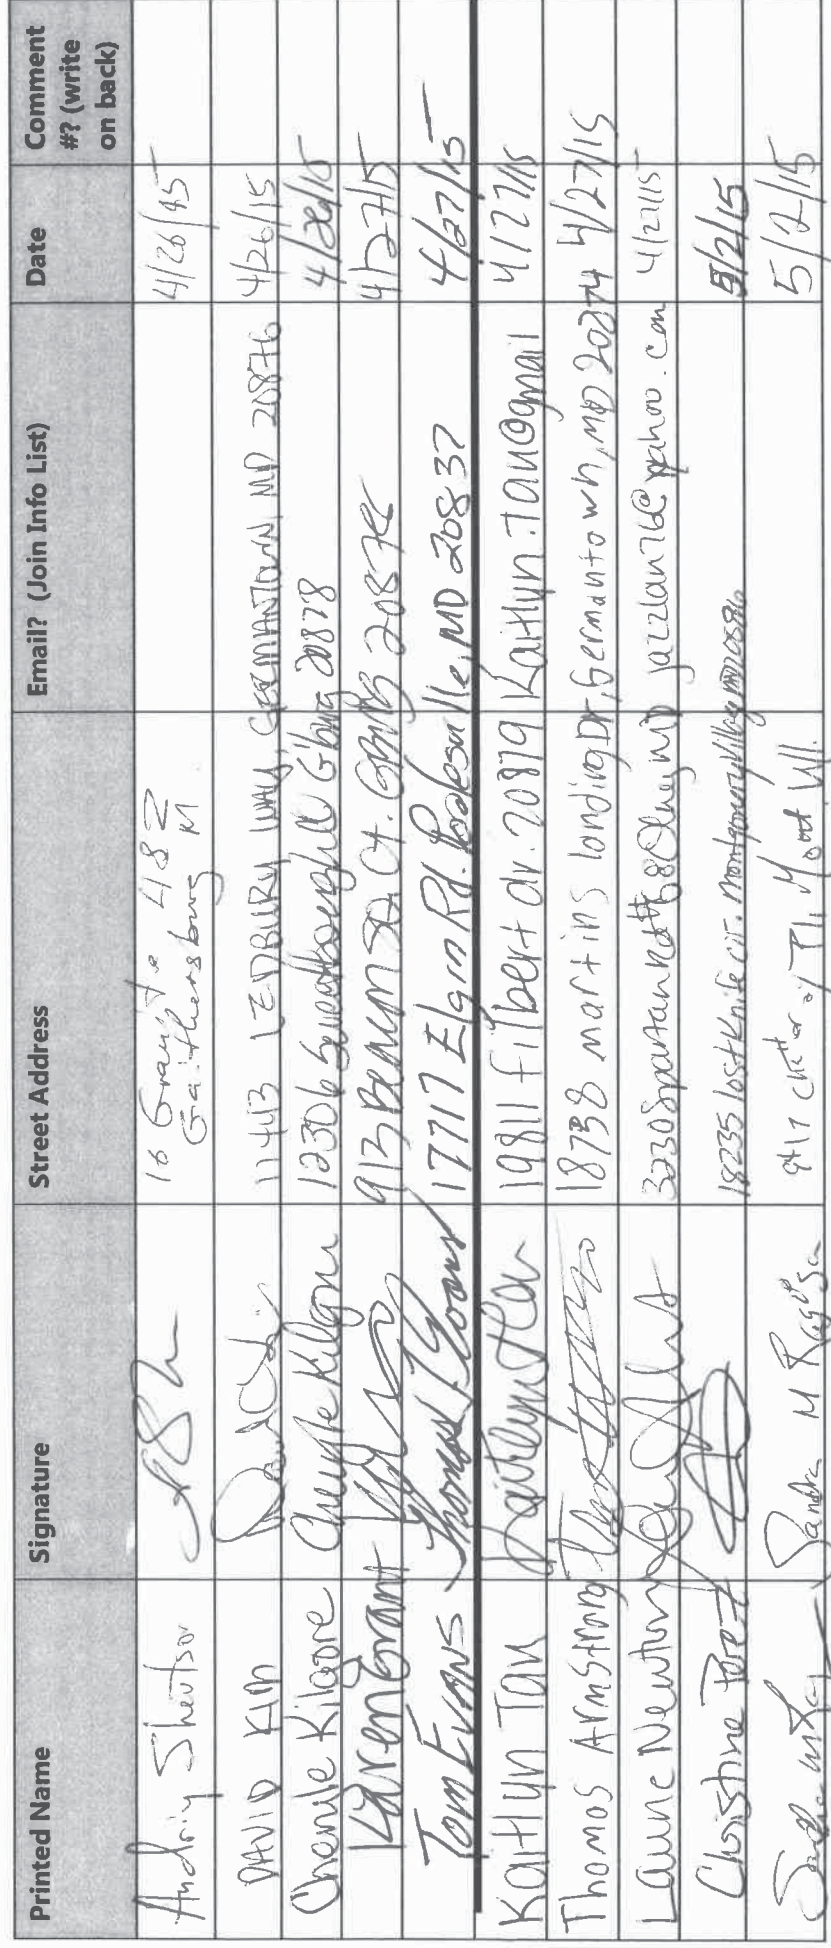 Printed Name Signature Street Address Email? (Join Info List) Date Comment #? (write on back)
Andriy Shevtsov 16 Granite 4/26/15
Gaithersburg
DAVID KIM 11443 LEDBURY WAY, GERMANTOWN, MD 20876 4/26/15
Cheryle Kilgore Cheryle Kilgore 12306 G'burg 20878 4/26/15
Karen Grant 913 Beacon Sq. Ct. GBurg 2087 4/27/15
Tom Evans Thomas Evans 17717 Elgin Rd. Poolesville, MD 20837 4/27/15
Kaitlyn Tan Kaitlyn Tan 19811 filbert dr. 20879 Kaitlyn.Tan@gmail 4/27/15
Thomas Armstrong 18738 martins landing Dr, Germantown, MD 20874 4/27/15
Laurie Newton 3230 Spartan Rd #68 Olney MD jazzlan76@yahoo.com 4/27/15
Christine 18235 lost knife cir. Montgomery Village MD 20886 5/2/15
Sandra M 9417 Mont Vill. 5/2/15